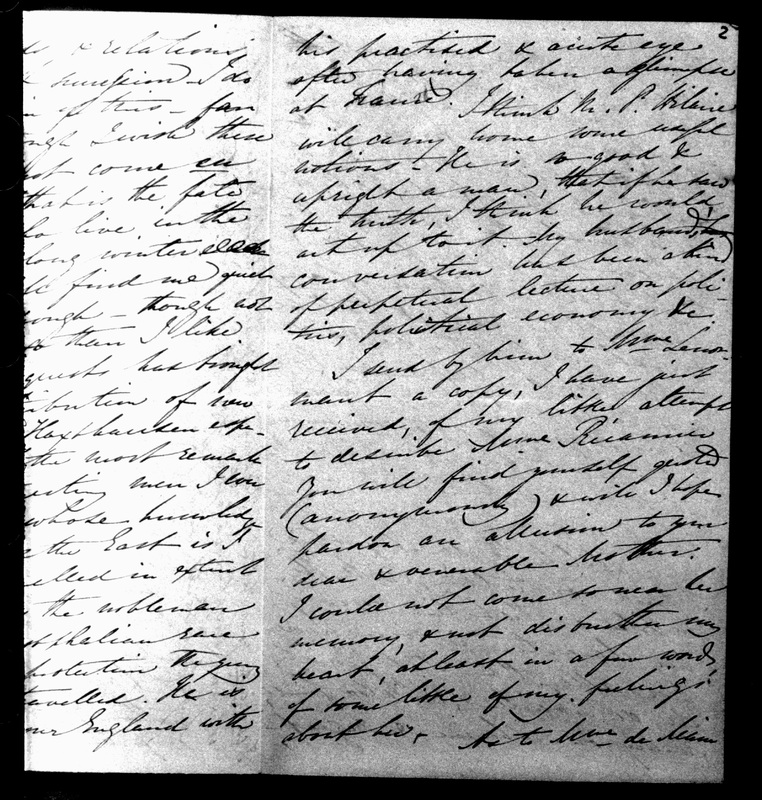 & relations
surgeon - I do
in of this - for
ough I wish these
not come en
that is the fate
to live in the
long winter
find me quiet
ough - though not
than I like
guests has brought
tribution of new
Haxthausen espe-
the most remark
esting men I ever
whose knowledge
the East is I
elled in extent
the nobleman
stphalian race
protection the young
travelled. He is
over England with
2
his practised & acute eye
after having taken a glimpse
at France. I think M. B. Hilaire
will carry home some useful
notions - He is so good &
upright a man, that if he saw
the truth, I think he would
act up to it. My husband's
conversation has been a kind
of perpetual lecture on poli-
tics, political economy &c.
I send by him to Mme Lenor-
mant a copy, I have just
received, of my little attempt
to describe Mme Récamier
You will find yourself quoted
(anonymously) & will I hope
pardon an allusion to your
dear & venerable Mother.
I could not come so near her
memory, & not disburthen my
heart, at least in a few words,
of some little of my feelings
about her. As to Mme de